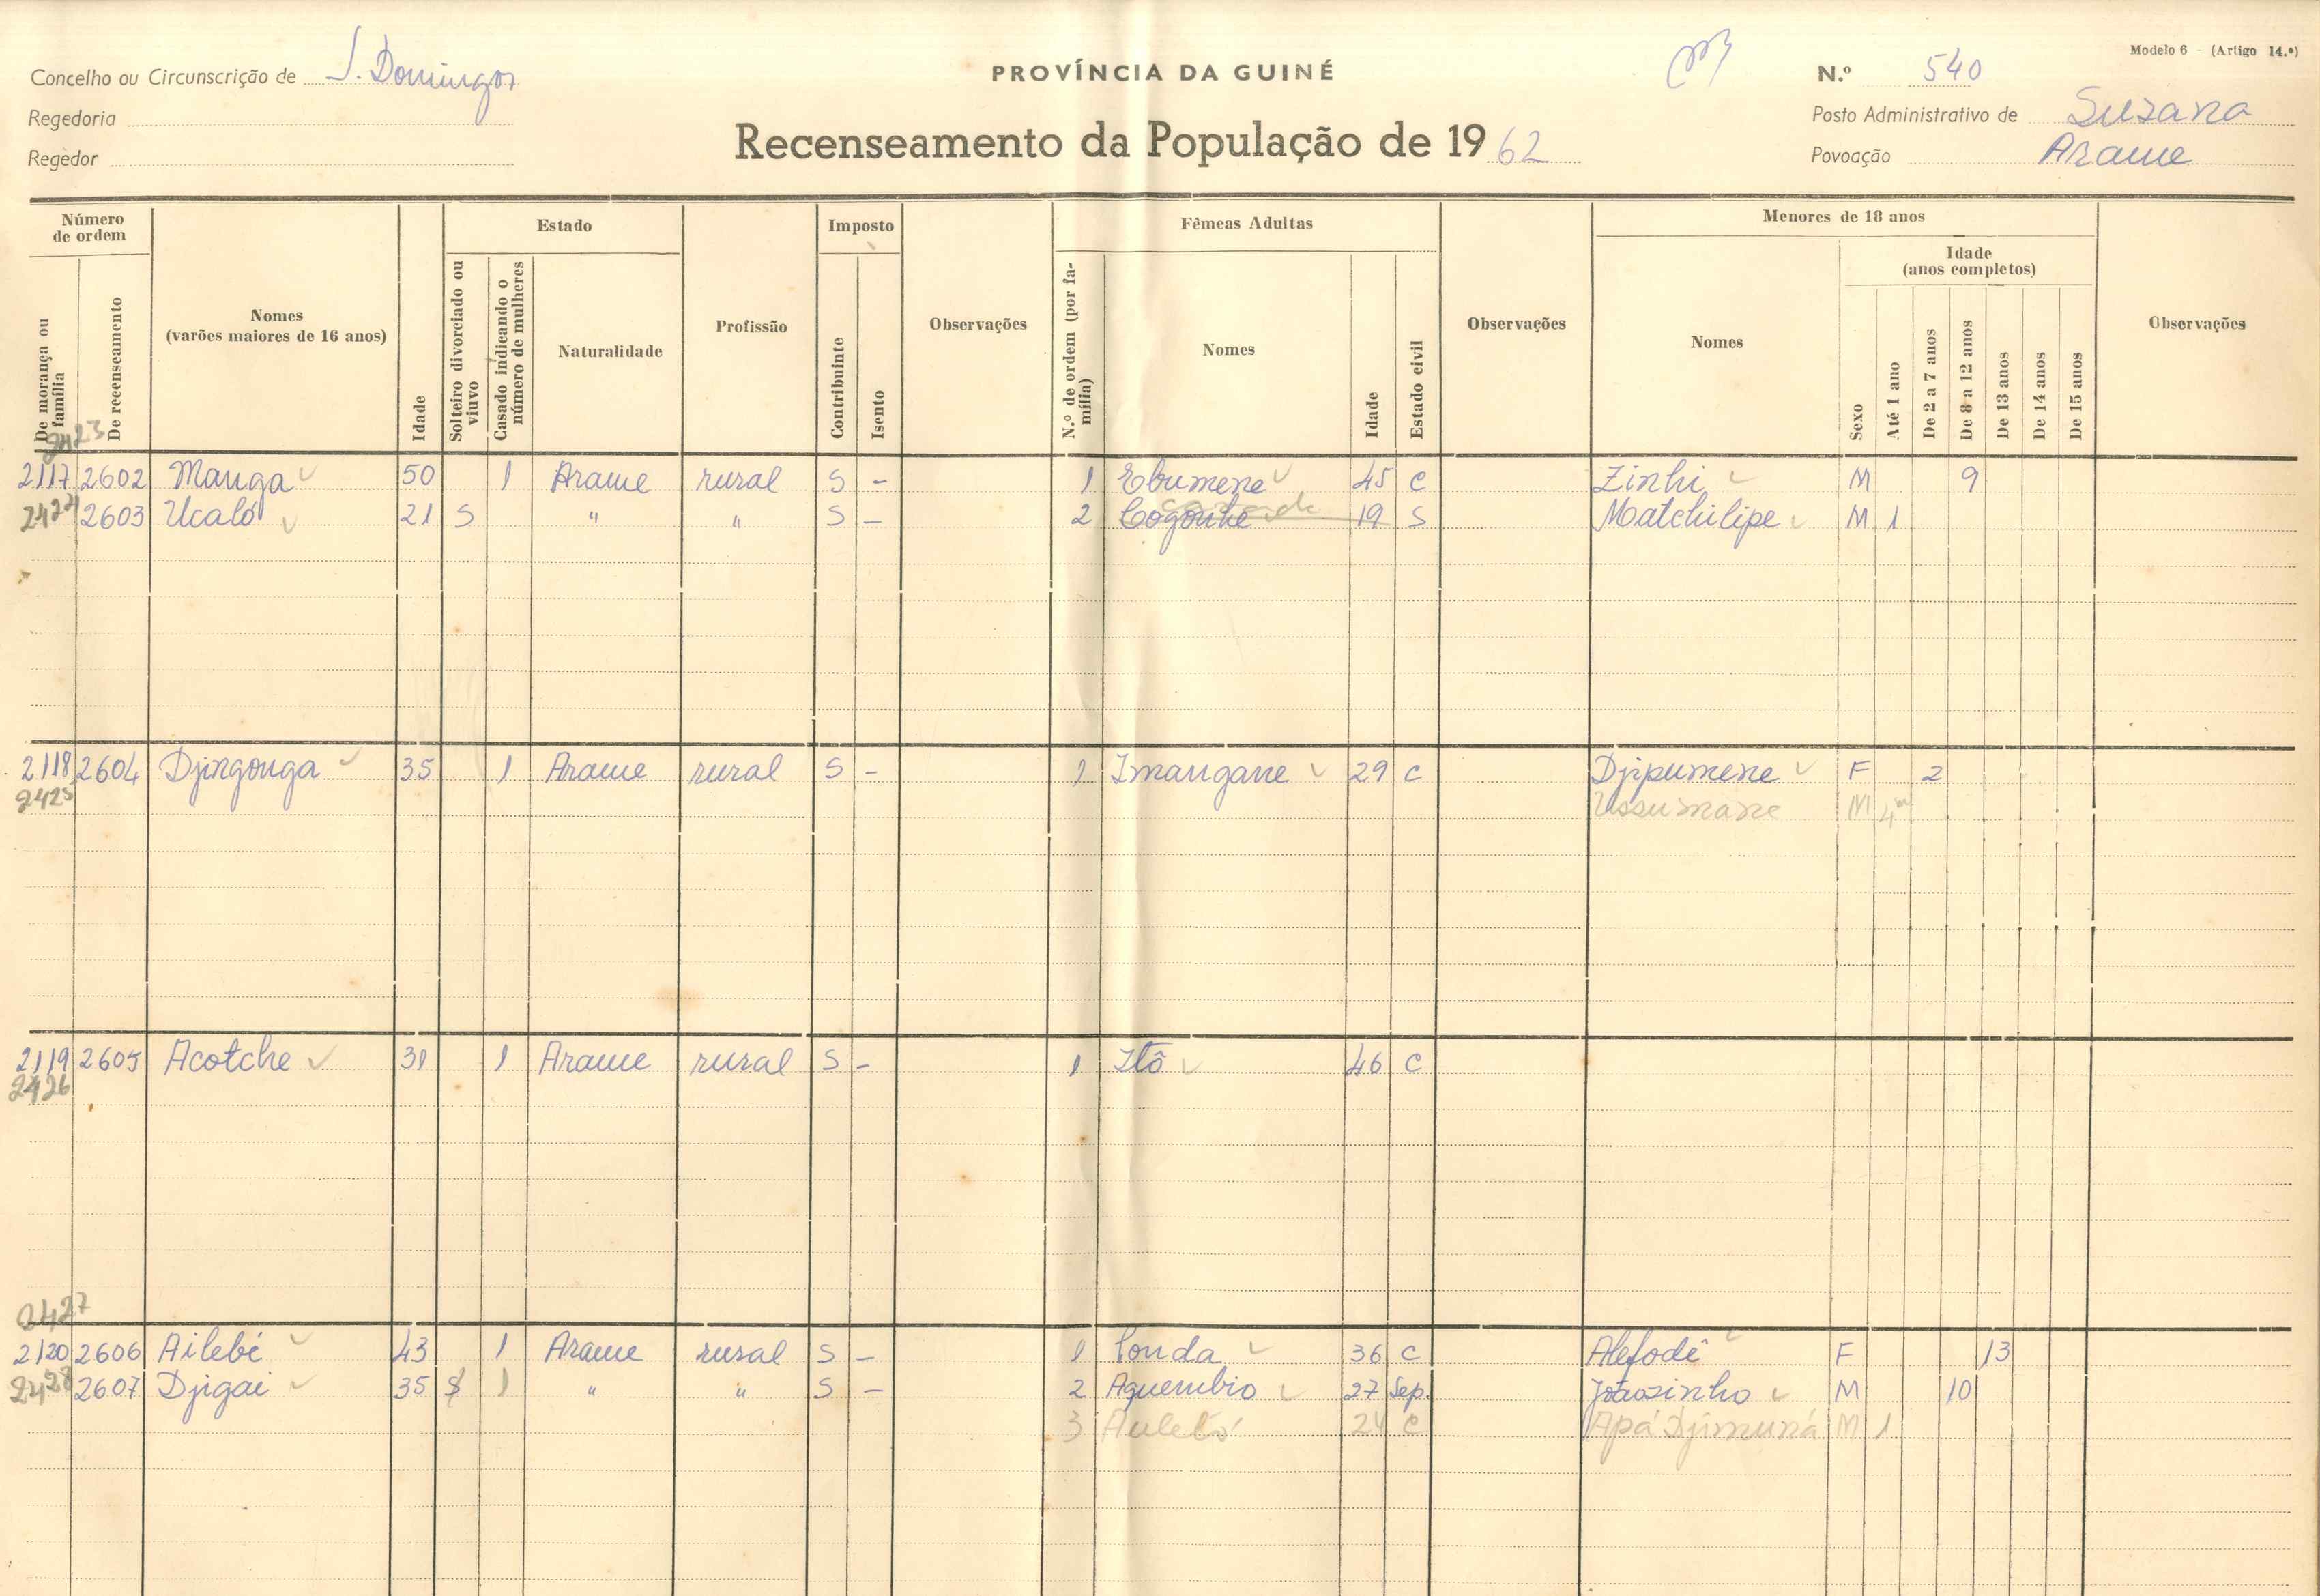 Modelo 6 - (Artigo 14.º)
Concelho ou Circunscrição de S. Domingos
PROVÍNCIA DA GUINÉ
N.º 540
Regedoria
Posto Administrativo de Suzana
Regedor
Recenseamento da População de 1962
Povoação Arame
Número de ordem
De morança ou família
De recenseamento
Nomes
(varões maiores de 16 anos)
Idade
Estado
Solteiro divorciado ou viuvo
Casado indicando o número de mulheres
Naturalidade
Profissão
Imposto
Contribuinte
Isento
Observações
Fêmeas Adultas
N.º de ordem (por família)
Nomes
Idade
Estado civil
Observações
Menores de 18 anos
Nomes
Sexo
Idade
(anos completos)
Até 1 ano
De 2 a 7 anos
De 8 a 12 anos
De 13 anos
De 14 anos
De 15 anos
Observações
2423
2117 2602 Manga 50 1 Arame rural S - 1 Ebumene 45 C Zinhi M 9
2424 2603 Ucaló 21 S " " S - 2 Cogonhe 19 S Matchilipe M 1
2118 2604 Djingonga 35 1 Arame rural S - 1 Imangane 29 C Djipumene F 2
2425 Ussumane M 4m
2119 2605 Acotche 31 1 Arame rural S - 1 Itô 46 C
2426
2427
2120 2606 Ailebé 43 1 Arame rural S - 1 Conda 36 C Alefodê F 13
2428 2607 Djigai 35 S 1 " " S - 2 Aquembio 27 Sep. Joãozinho M 10
3 Auletó 24 C Apá Djimuná M 1